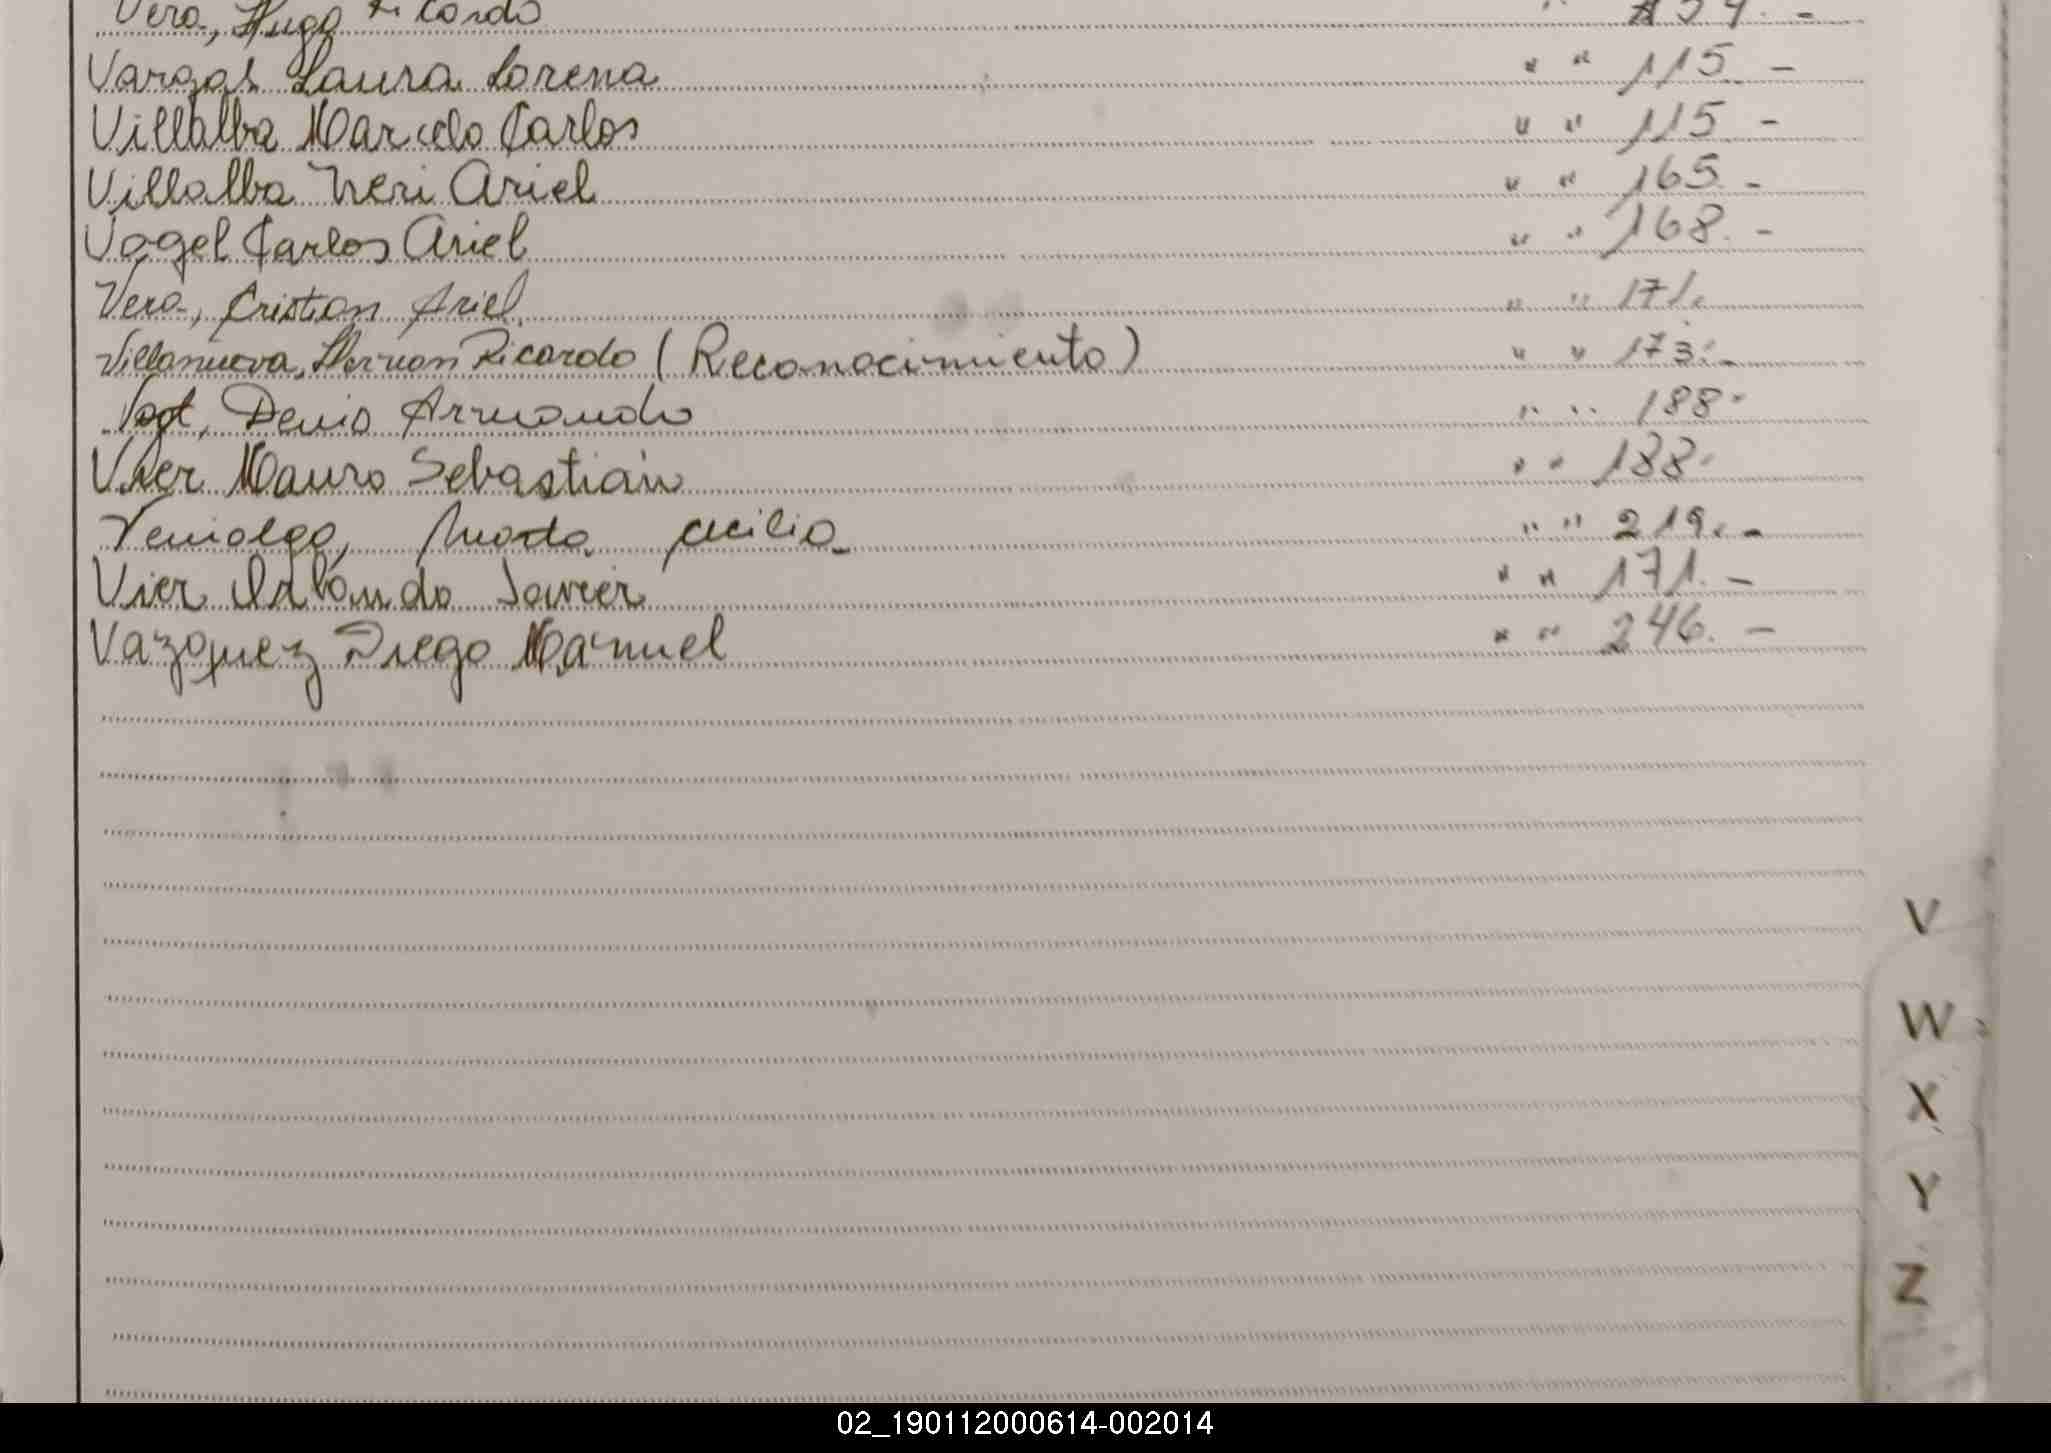 Vera, Hugo Ricardo
Vargas Laura Lorena " " 115. -
Villalba Marcelo Carlos " " 115 -
Villalba Neri Ariel " " 165. -
Vogel Carlos Ariel " " 168. -
Vera, Cristian Ariel. " " 171.
Villanueva, Hernan Ricardo (Reconocimiento) " " 173. -
Vogt, Denis Armando " " 188.
Vier Mauro Sebastián " " 188.
Veniolgo, Marta Cecilia " " 219. -
Vier Orlando Javier " " 171. -
Vazquez Diego Manuel " " 246. -
V
W
X
Y
Z
02_190112000614-002014